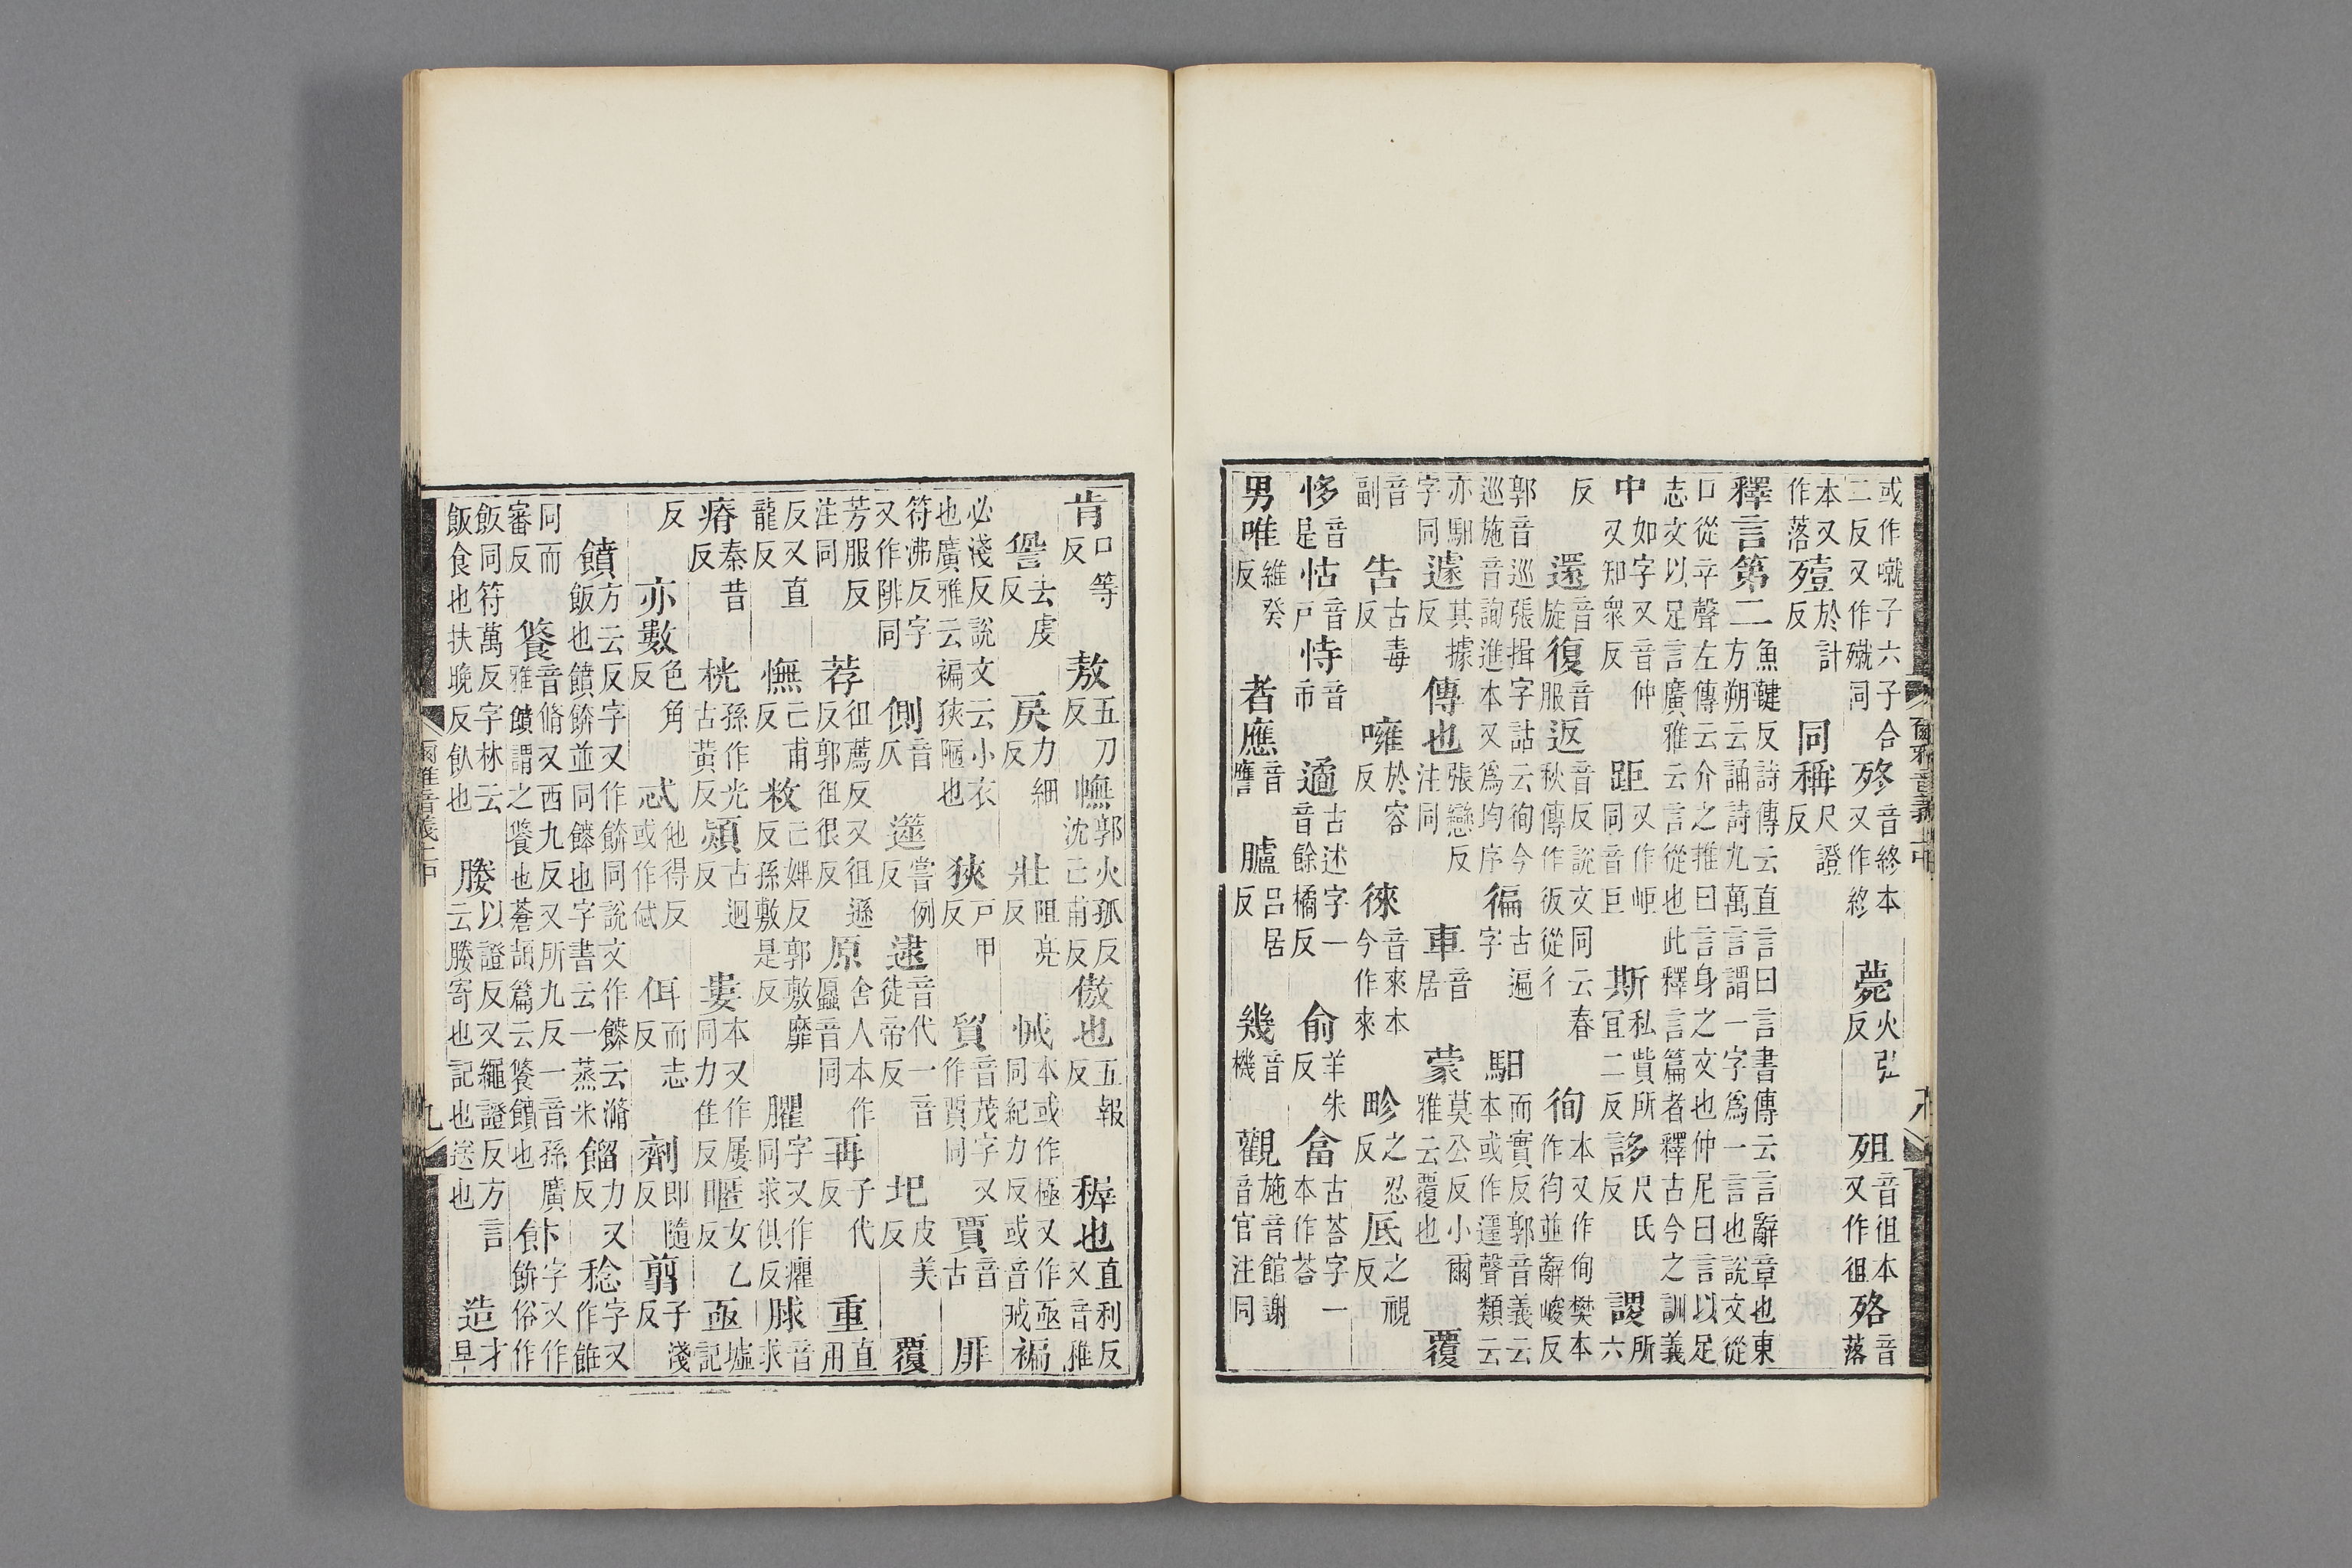 或作噈子六子合
二反又作殧同
殁音終本
又作終
薨火弘
反
殂音徂本
又作徂
殆音
落
本又
作落
殪於計
反
同稱尺證
反
釋言第二魚鞬反詩傳云直言曰言書傳云言辭章也東
方朔云誦詩九萬言謂一字爲一言也說文從
口從䇂聲左傳云介之推曰言身之文也仲尼曰言以足
志文以足言廣雅云言從也此釋言篇者釋古今之訓義
中如字又音仲
又知衆反
距又作岠
同音巨
斯私貲所
宜二反
謻尺氏
反
謖所
六
反
還音
旋
復音
服
返音反說文同云春
秋傳作彶從彳
徇本又作侚樊本
作徇並辭峻反
郭音巡張揖字詁云徇今
巡施音詢進本又爲均序
徧古遍
字
馹而實反郭音義云
本或作遲聲類云
亦馹
字同
遽其據
反
傳也張戀反
注同
車音
居
蒙莫公反小爾
雅云覆也
覆
音
副
告古毒
反
噰於容
反
徠音來本
今作來
畛之忍
反
底之視
反
恀音
是
怙音
戶
恃音
市
遹古述字一
音餘橘反
俞羊朱
反
畣古荅字一
本作荅
男唯維癸
反
者應音
譍
臚呂居
反
幾音
機
觀施音館謝
音官注同
肯口等
反
敖五刀
反
幠郭火孤反
沈亡甫反
傲也五報
反
稺也直利反
又音稚
諐去虔
反
戾力細
反
壯阻亮
反
悈本或作極又作亟
同紀力反或音戒
褊
必淺反說文云小衣
也廣雅云褊狹陋也
狹戶甲
反
貿音茂字又
作貿同
賈音
古
厞
符沸反字
又作陫同
側音
仄
遾嘗例
反
逮音代一音
徒帝反
圯皮美
反
覆
芳服反
注同
荐徂薦反又徂遜
反郭徂很反
原舍人本作
䢨音同
再子代
反
重直
用
反又直
龍反
憮亡甫
反
敉亡婢反郭敷靡
反孫敷是反
臞字又作癯
同求俱反
脙音
求
瘠秦昔
反
桄孫作光
古黃反
熲古迥
反
婁本又作屢
同力住反
暱女乙
反
亟墟
記
反
亦數色角
反
忒他得反
或作㥾
佴而志
反
劑即隨
反
翦子淺
反
饙方云反字又作餴同說文作䭱云滫
飯也饙餴並同䭱也字書云一蒸米
餾力又
反
稔字又
作䭃
同而
審反
餐音脩又西九反又所九反一音孫廣
雅饙謂之餐也蒼頡篇云餐饙也
䬳字又作
餴俗作
飯同符萬反字林云
飯食也扶晚反飤也
媵以證反又繩證反方言
云媵寄也記也送也
造才
早
爾雅音義上中
九